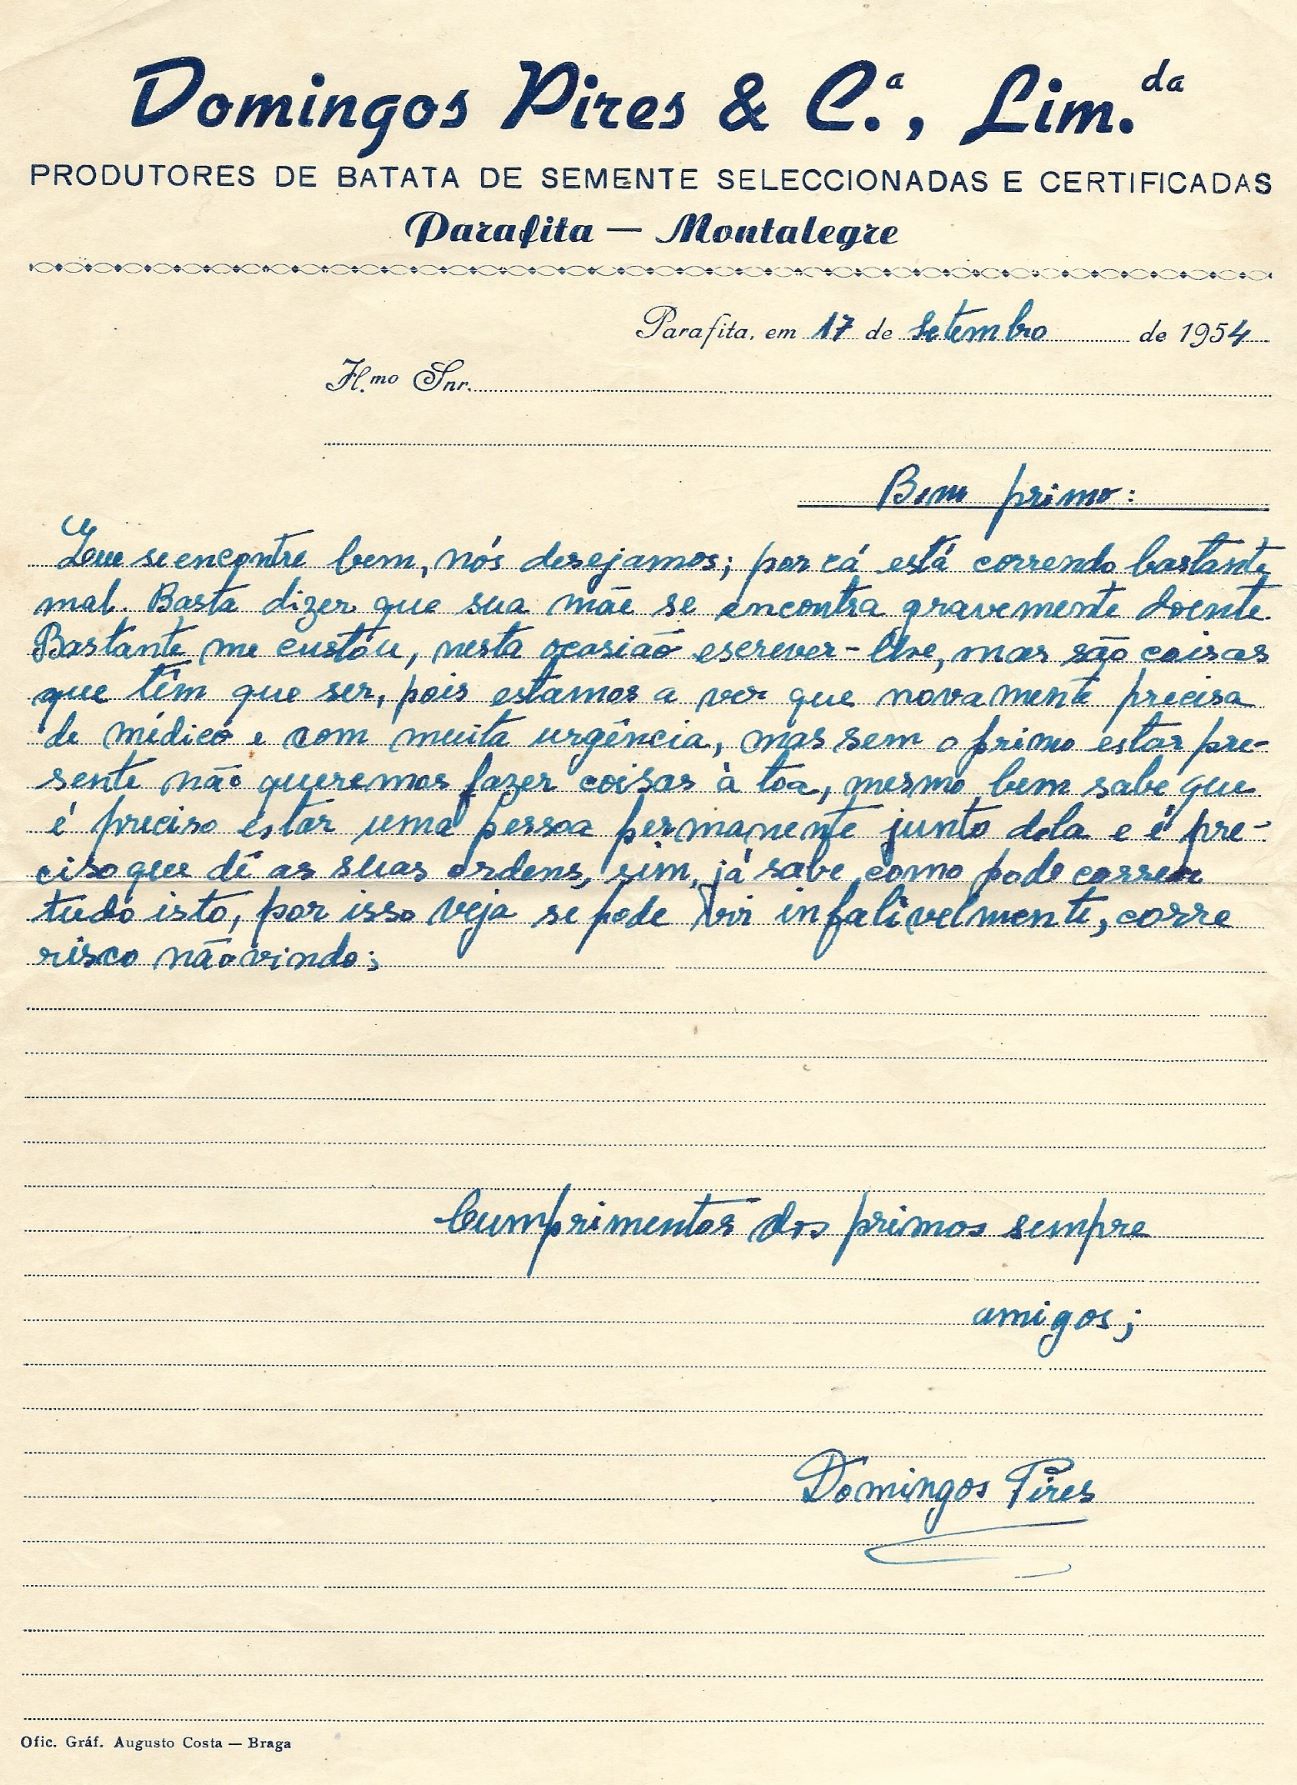 Domingos Pires & C.ª, Lim.da
PRODUTORES DE BATATA DE SEMENTE SELECCIONADAS E CERTIFICADAS
Parafita — Montalegre
Parafita, em 17 de setembro de 1954
Il.mo Snr.
Bom primo:
Que se encontre bem, nós desejamos; por cá está correndo bastante
mal. Basta dizer que sua mãe se encontra gravemente doente.
Bastante me custou, nesta ocasião escrever-lhe, mas são coisas
que têm que ser, pois estamos a ver que novamente precisa
de médico e com muita urgência, mas sem o primo estar pre-
sente não queremos fazer coisas à toa, mesmo bem sabe que
é preciso estar uma pessoa permanente junto dela e é pre-
ciso que dê as suas ordens, sim, já sabe como pode correr
tudo isto, por isso veja se pode vir infalivelmente, corre
risco não vindo;
Cumprimentos dos primos sempre
amigos;
Domingos Pires
Ofic. Gráf. Augusto Costa — Braga